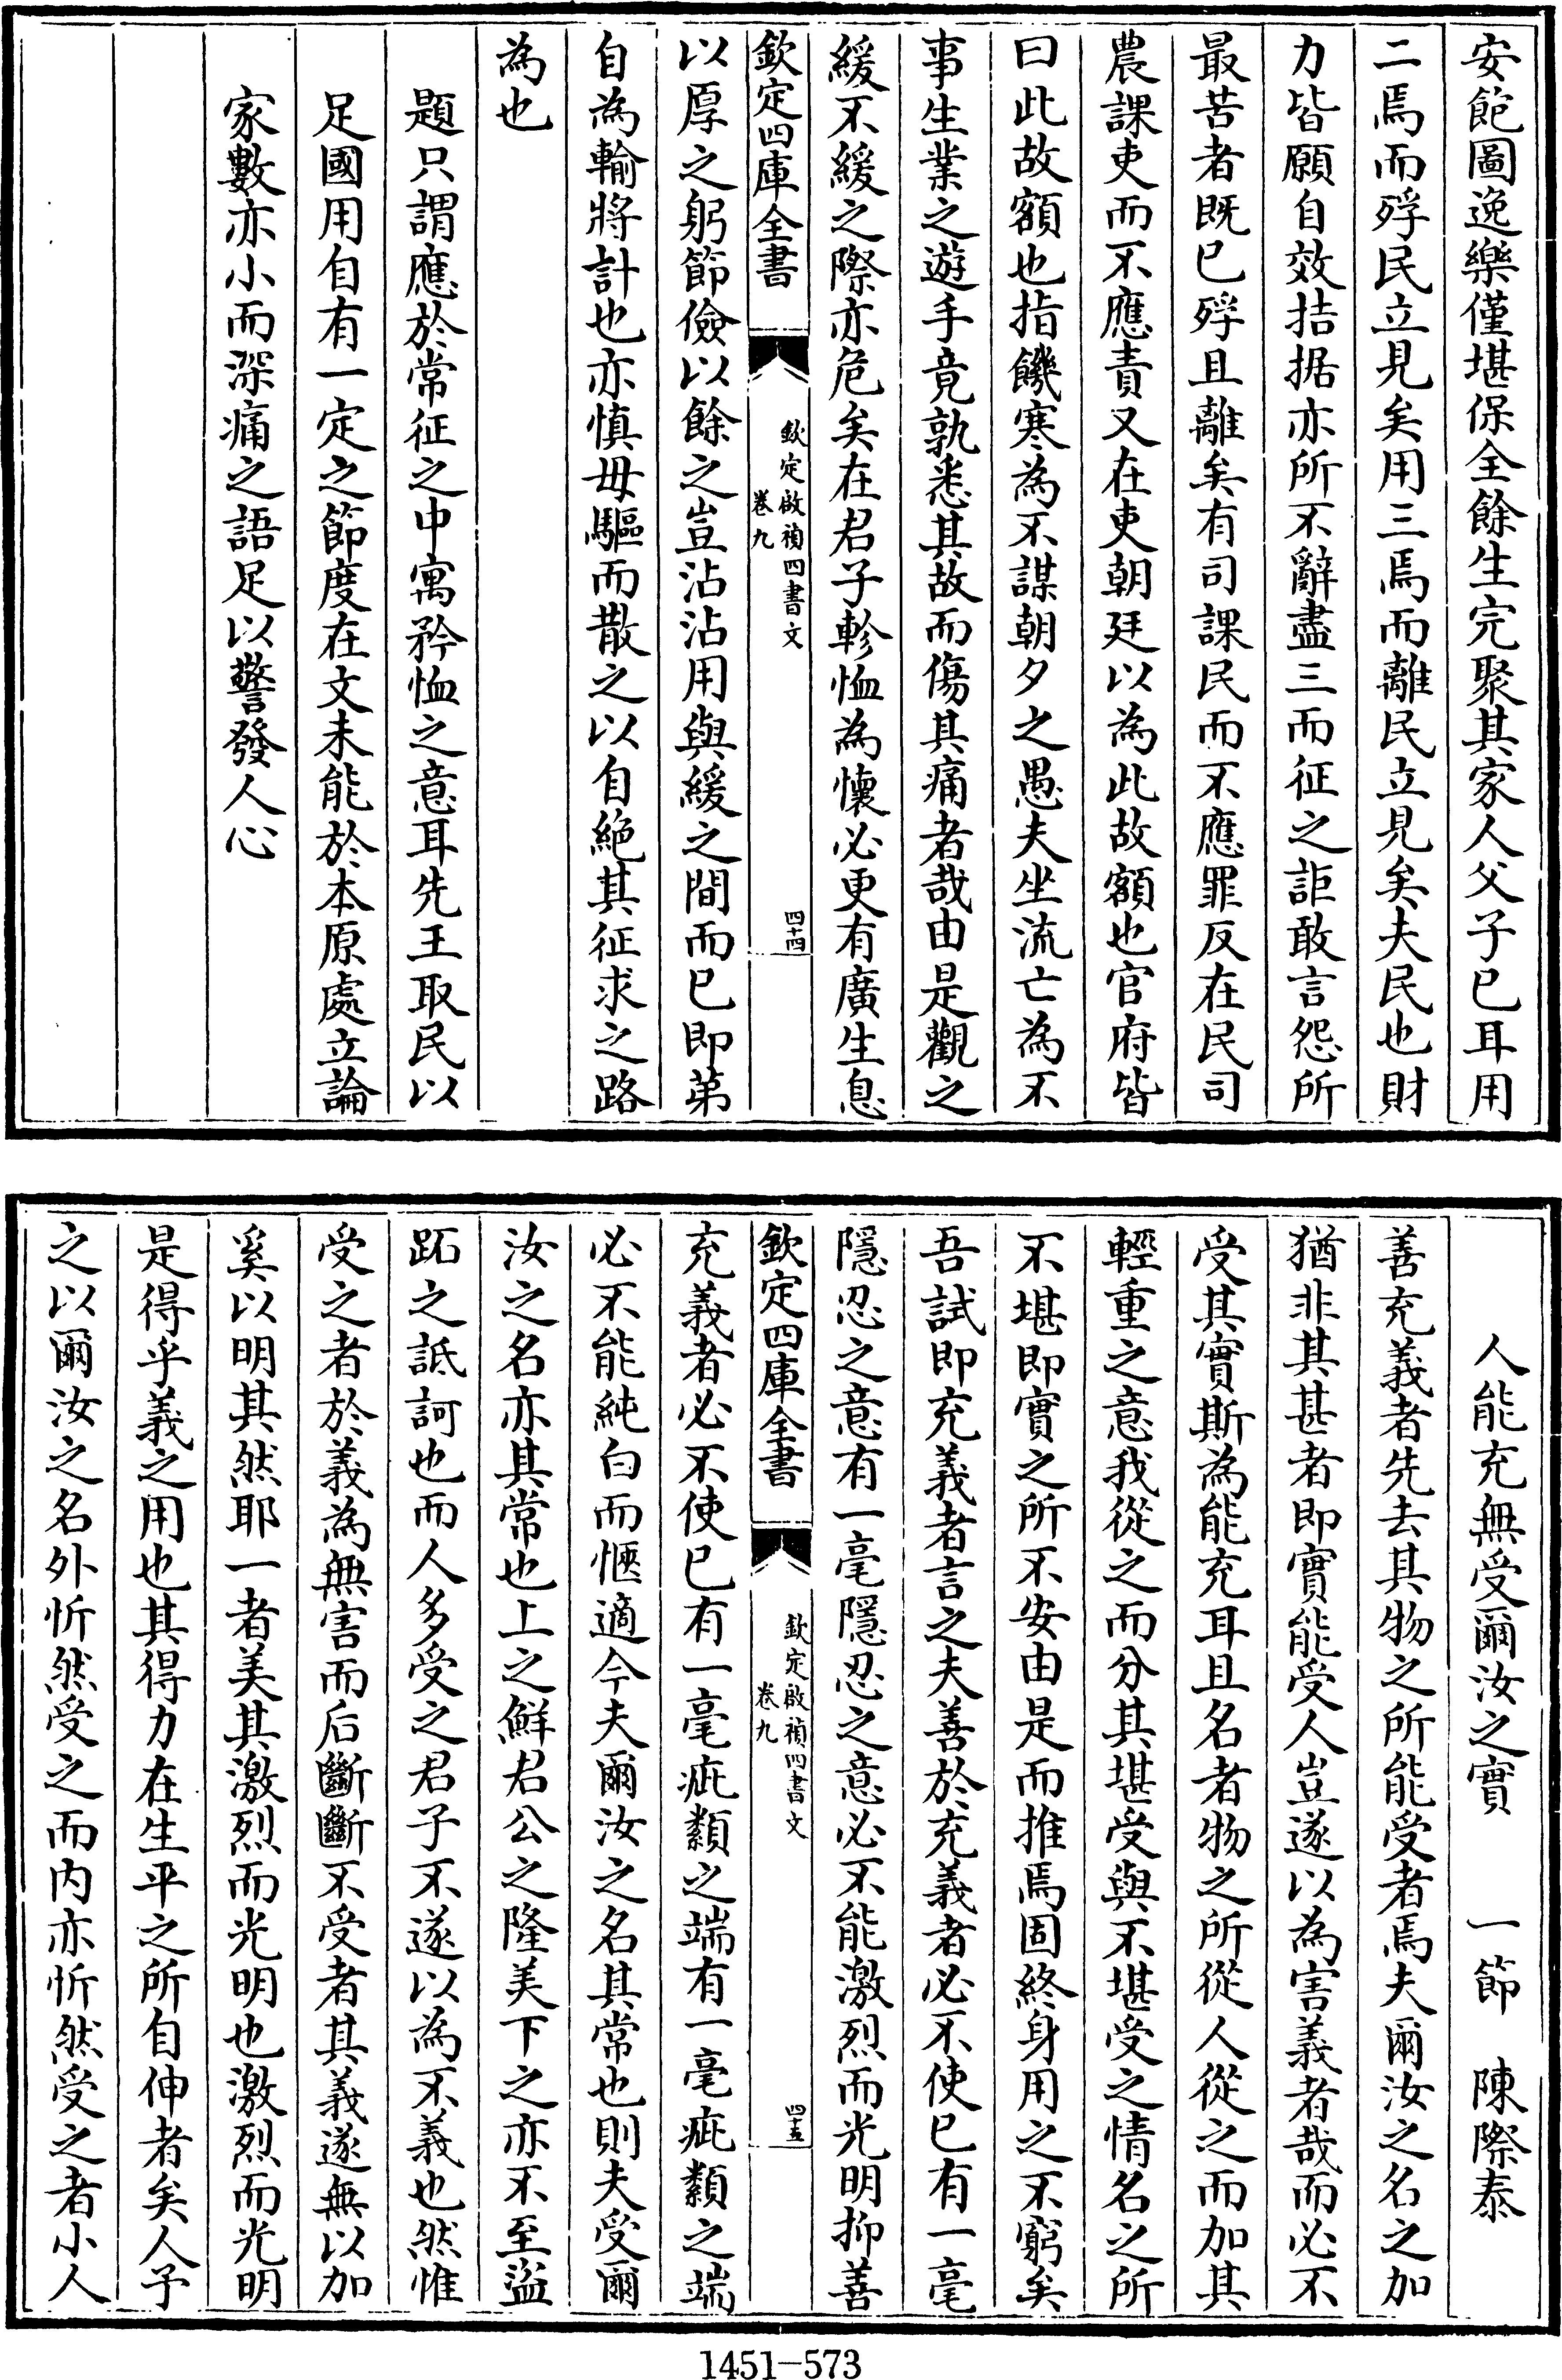 安飽圖逸樂僅堪保全餘生完聚其家人父子已耳用
二焉而殍民立見矣用三焉而離民立見矣夫民也財
力皆願自效拮据亦所不辭盡三而征之詎敢言怨所
最苦者既已殍且離矣有司課民而不應罪反在民司
農課吏而不應責又在吏朝廷以為此故額也官府皆
曰此故額也指饑寒為不謀朝夕之愚夫坐流亡為不
事生業之遊手竟孰悉其故而傷其痛者哉由是觀之
緩不緩之際亦危矣在君子軫恤為懷必更有廣生息
欽定四庫全書
欽定啟禎四書文
卷九
四十四
以厚之躬節儉以餘之豈沾沾用與緩之間而已即第
自為輸將計也亦慎毋驅而散之以自絕其征求之路
為也
題只謂應於常征之中寓矜恤之意耳先王取民以
足國用自有一定之節度在文未能於本原處立論
家數亦小而深痛之語足以警發人心
人能充無受爾汝之實 一節 陳際泰
善充義者先去其物之所能受者焉夫爾汝之名之加
猶非其甚者即實能受人豈遂以為害義者哉而必不
受其實斯為能充耳且名者物之所從人從之而加其
輕重之意我從之而分其堪受與不堪受之情名之所
不堪即實之所不安由是而推焉固終身用之不窮矣
吾試即充義者言之夫善於充義者必不使已有一毫
隱忍之意有一毫隱忍之意必不能激烈而光明抑善
欽定四庫全書
欽定啟禎四書文
卷九
四十五
充義者必不使已有一毫疵纇之端有一毫疵纇之端
必不能純白而愜適今夫爾汝之名其常也則夫受爾
汝之名亦其常也上之鮮君公之隆美下之亦不至盜
跖之詆訶也而人多受之君子不遂以為不義也然惟
受之者於義為無害而后斷斷不受者其義遂無以加
奚以明其然耶一者美其激烈而光明也激烈而光明
是得乎義之用也其得力在生平之所自伸者矣人予
之以爾汝之名外忻然受之而內亦忻然受之者小人
1451-573